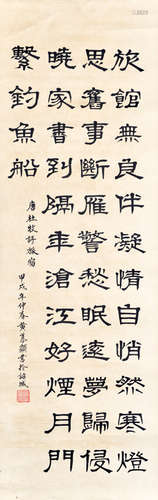 旅館無良伴凝情自悄然寒燈
思舊事斷雁警愁眠遠夢歸侵
曉家書到隔年滄江好煙月門
繫釣魚船
唐杜牧詩旅宿
甲戌年仲春黃書於城